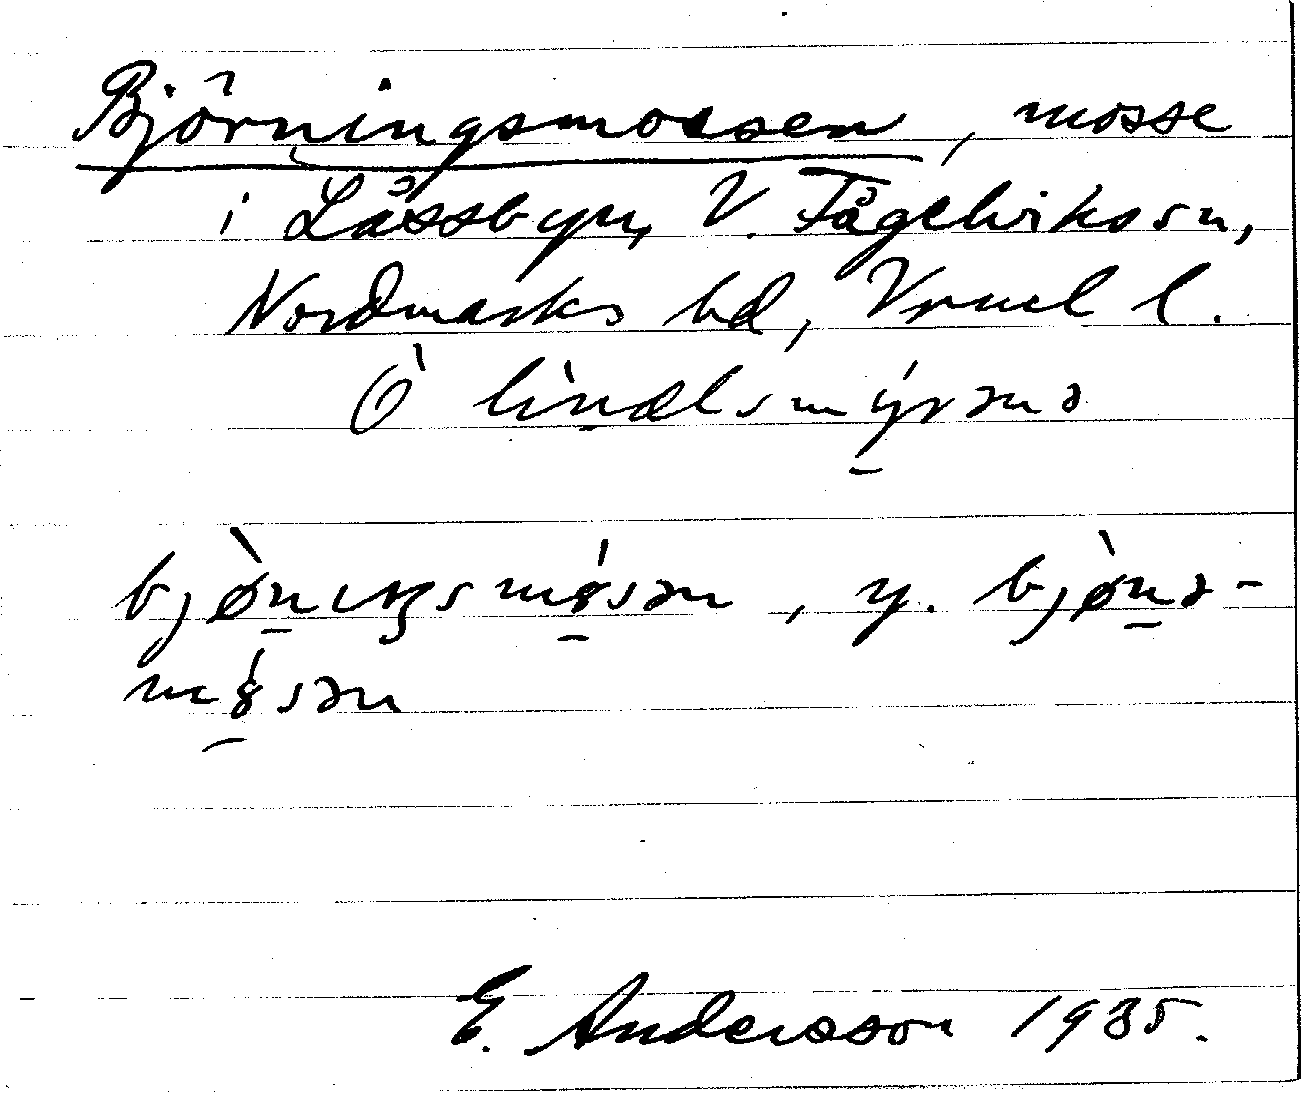 Björningsmossen, mosse
i Låssbyn, V. Fågelviks sn,
Nordmarks hd, Vrml l.
Ö lìnəlsmýrənə
bjø̀nıŋsmósən, y. bjø̀nə-
mósən
E. Andersson 1935.